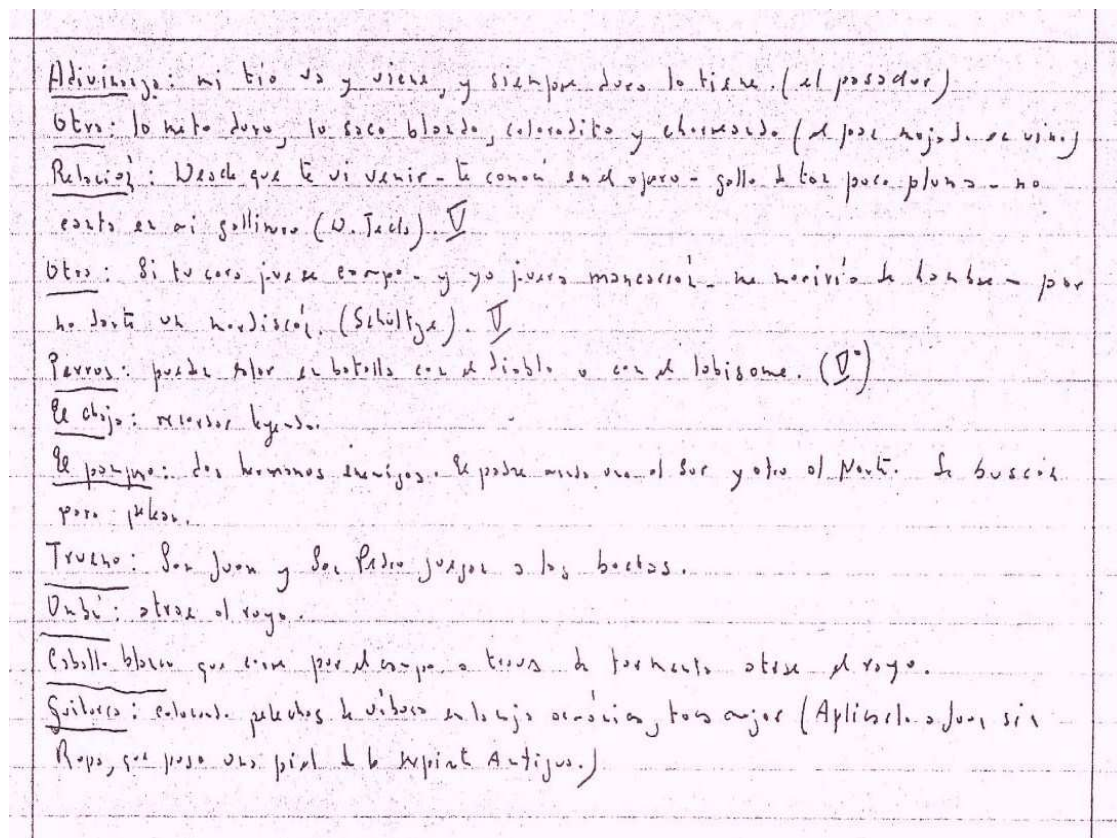 Adivinanza: mi tio va y viene, y siempre duro lo tiene. (el pasador)
Otra: lo meto duro, lo saco blando, coloradito y chorreando (el pan mojado en vino)
Relación: Desde que te vi venir - te conocí en el apero - gallo de tan poca pluma - no
canta en mi gallinero (D. Tecla). V
Otra: Si tu cara juese campo - y yo juera mancarrón - me moriría de hambre - por
no darte un mordiscón. (Schultze). V
Perros: pueden estar en batalla con el diablo o con el lobisome. (V°)
El chajá: recordar leyenda.
El pampero: dos hermanos enemigos. El padre manda uno al Sur y otro al Norte. Se buscan
para pelear.
Trueno: San Juan y San Pedro juegan a las bochas.
Ombú: atrae al rayo.
Caballo blanco que corre por el campo a través de tormenta atrae el rayo.
Guitarra: colocando pelechos de víbora en la caja armónica, toca mejor (Aplicarlo a Juan sin
Ropa, que puso una piel de la serpiente Antigua.)